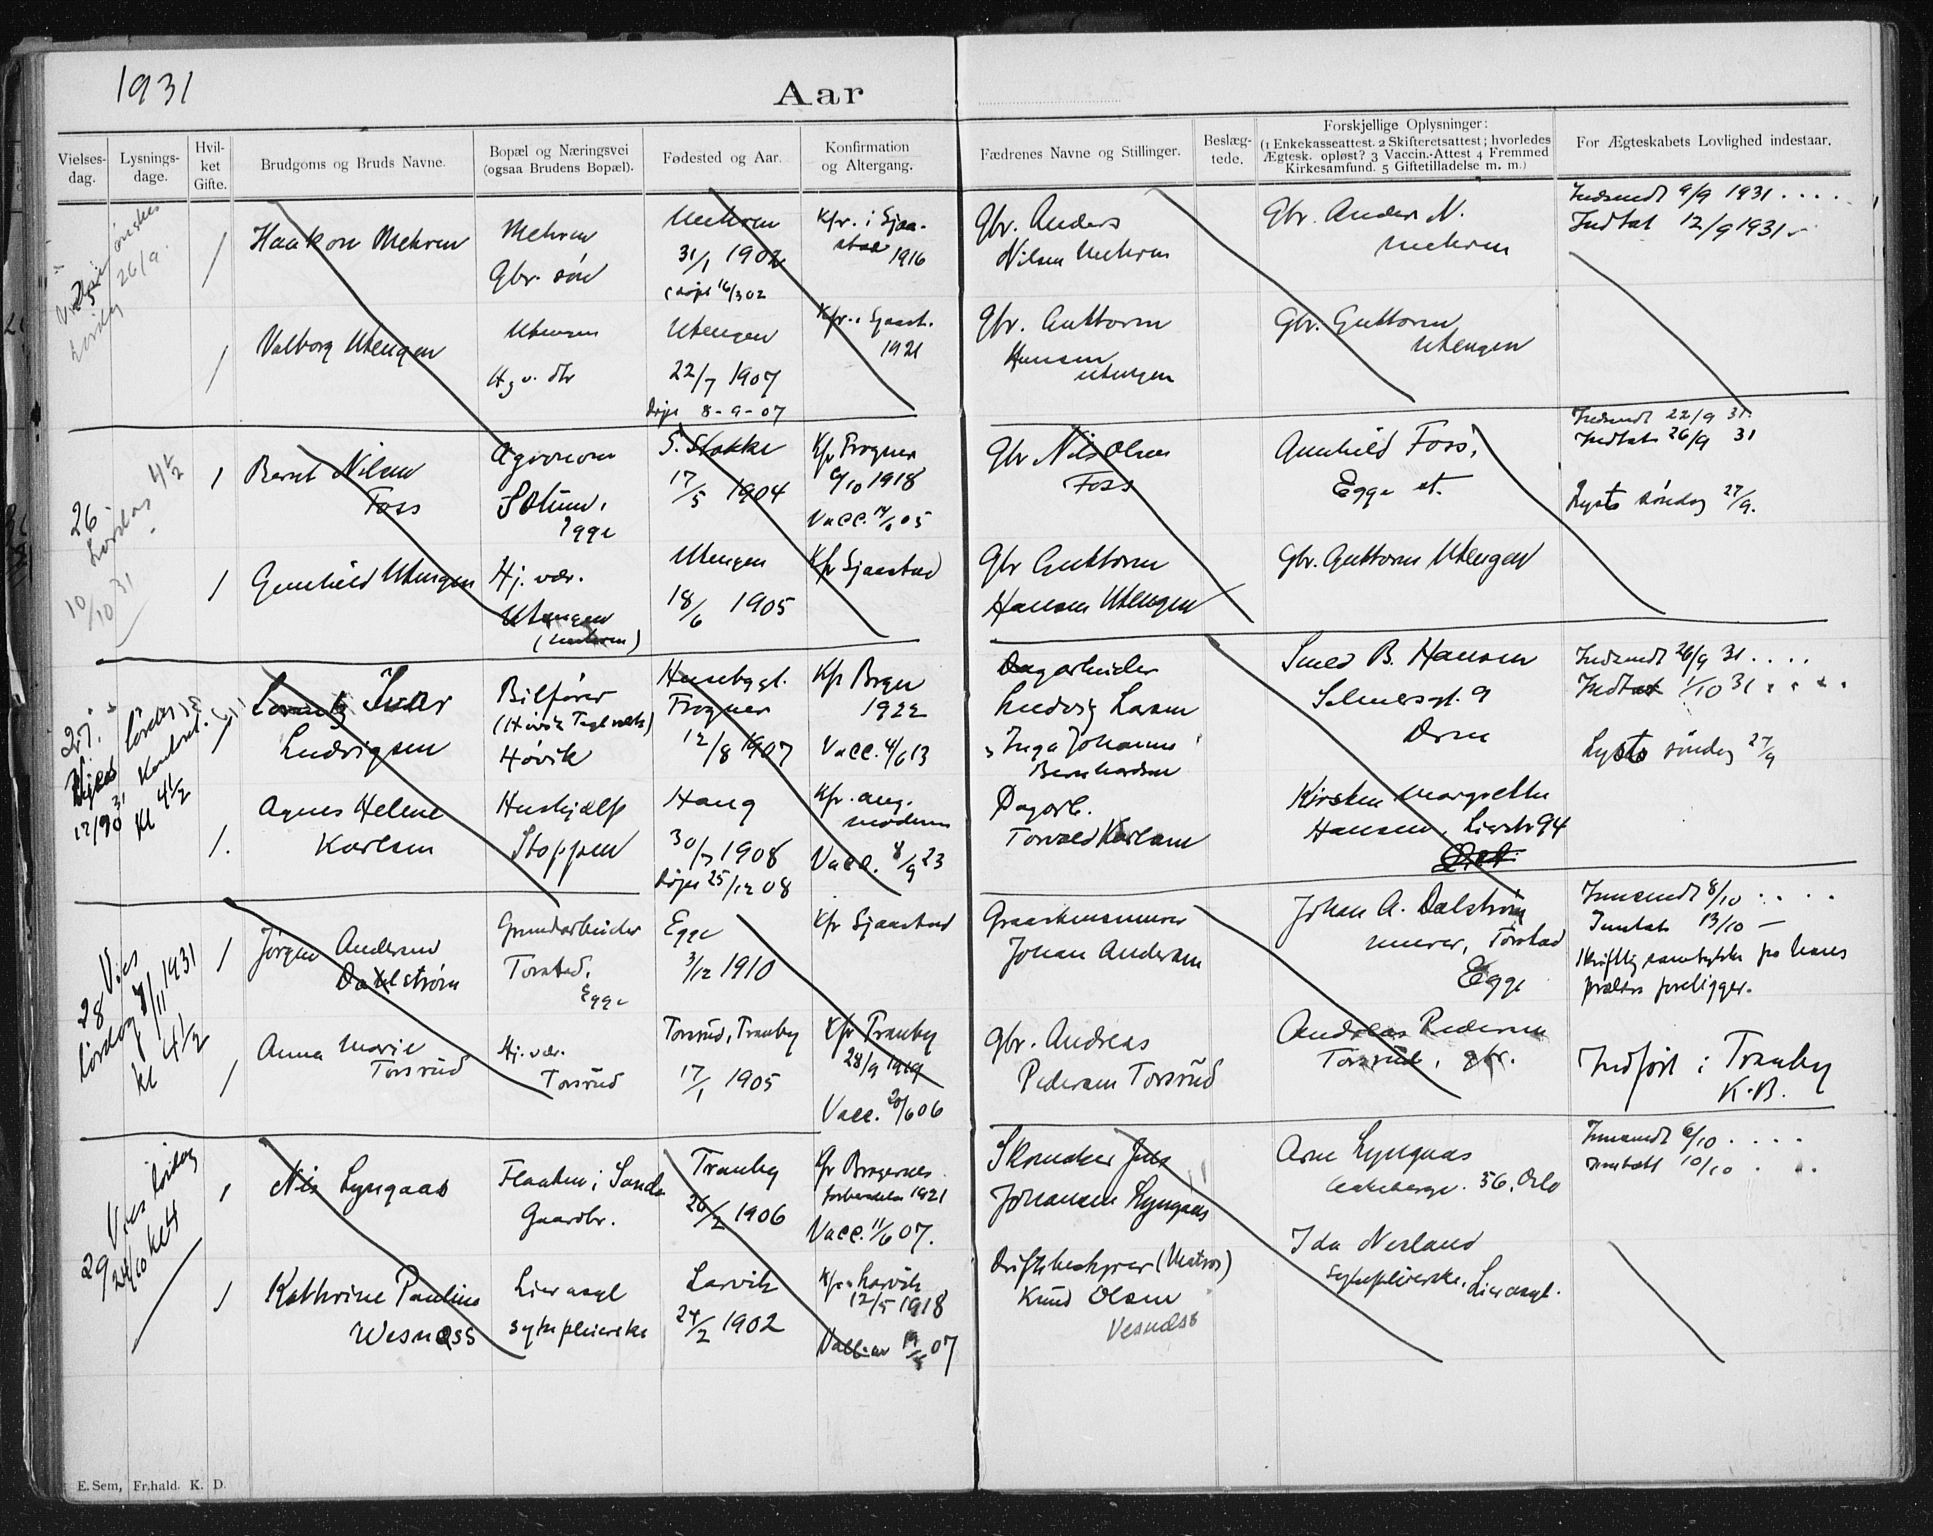 1931
Aar
Vielses-dag.
Lysnings-dage.
Hvil-ket Gifte.
Brudgoms og Bruds Navne.
Bopæl og Næringsvei
(ogsaa Brudens Bopæl).
Fødested og Aar.
Konfirmation
og Altergang.
Fædrenes Navne og Stillinger.
Beslæg-tede.
Forskjellige Oplysninger:
(1 Enkekasseattest. 2 Skifteretsattest; hvorledes
Ægtesk. opløst? 3 Vaccin.-Attest 4 Fremmed
Kirkesamfund. 5 Giftetilladelse m. m.)
For Ægteskabets Lovlighed indestaar.
25
ønskes
Lørdag 26/9.
1
Haakon Mehren
Mehren
Gbr. søn
Mehren
31/1 1902
(døpt 16/3 02
Kfr. i Sjaa-
stad 1916
Gbr. Anders
Nilsen Mehren
Gbr. Anders N.
Mehren
Indsendt 9/9 1931 ....
Indtat 12/9 1931
1
Valborg Utengen
Utengen
Utengen
22/7 1907
Døpt 8-9-07
Kfr. i Sjaast.
1921
Gbr. Guttorm
Hansen
Utengen
Gbr. Guttorm
Utengen
26
Lørdag 4½
10/10 31
1
Bernt Nilsen
Foss
Agronom
Egge
S. Stokke
17/5 1904
Kfr Frogner
6/10 1918
Vacc. 05
Gbr Nils Olsen
Foss
Gunhild Foss,
Egge st.
Indsendt 22/9 31.
Indtat 26/9 31
Lyst søndag 27/9.
1
Gunhild Utengen
Hj. vær.
Utengen
(Mehren)
Utengen
18/6 1905
Kfr Sjaastad
Gbr Guttorm
Hansen Utengen
Gbr. Guttorm Utengen
27.
Lørdag
Kontoret.
Kl 4½
1
Ivar
Ludvigsen
Bilfører
Høvik
Frogner
12/8 1907
Kfr Bragn
1922
Vacc. 4/6 13
Dagarbeider
Ludvig Larsen
Inga Johanne
Bernhardsen
Smed B. Hansen
Selmersgt. 9
Drm
Indsendt 26/9 31 ....
Indtat 1/10 31 ....
Lyst søndag 27/9
1.
Agnes Helene
Karlsen
Hushjælp
Stoppen
Haug
30/7 1908
Døpt 25/12 08
Kfr. aug.
Vacc. 8/9 23
Dagarb.
Torvald Karlsen
Kirsten Margrethe
Hansen, Lierstr 94
28 Vies
Lørdag 7/11 1931
kl 4½
1
Jørgen Andersen
Dahlstrøm
Grundarbeider
Torstad,
Egge
Egge
3/12 1910
Kfr Sjaastad
Graastensmurer
Johan Andersen
Johan A. Dalstrøm
murer, Torstad
Egge
Innsendt 8/10 ....
Inntat 13/10 —
Skriftlig samtykke fra hans
foreligger.
1
Anna Marie
Torsrud
Hj. vær.
Torsrud
Torsrud, Tranby
17/1 1905
Kfr Tranby
28/9 1919
Vacc. 20/6 06
Gbr. Andreas
Pedersen Torsrud
Andreas Pedersen
Torsrud, gbr.
Indført i Tranby
K.B.
29 Vies Lørdag
24/10 kl 4
1
Nils Lyngaas
Flaaten i Sande
Gaardbr.
Tranby
26/2 1906
Kfr Bragernes
1921
Vacc. 11/6 07.
Skomaker Jens
Johansen Lyngaas
Arne Lyngaas
56, Oslo
Innsendt 6/10 ....
Inntatt 10/10 ...
1
Kathrine Pauline
Wesnæss
Lier asyl
sykepleierske
Larvik
24/2 1902
Kfr. Larvik
12/5 1918
07
Driftsbestyrer (Matros)
Knud Olsen
Vesnæss
Ida Nesland
sykepleierske, Lier asyl.
E. Sem, Fr.hald. K. D.